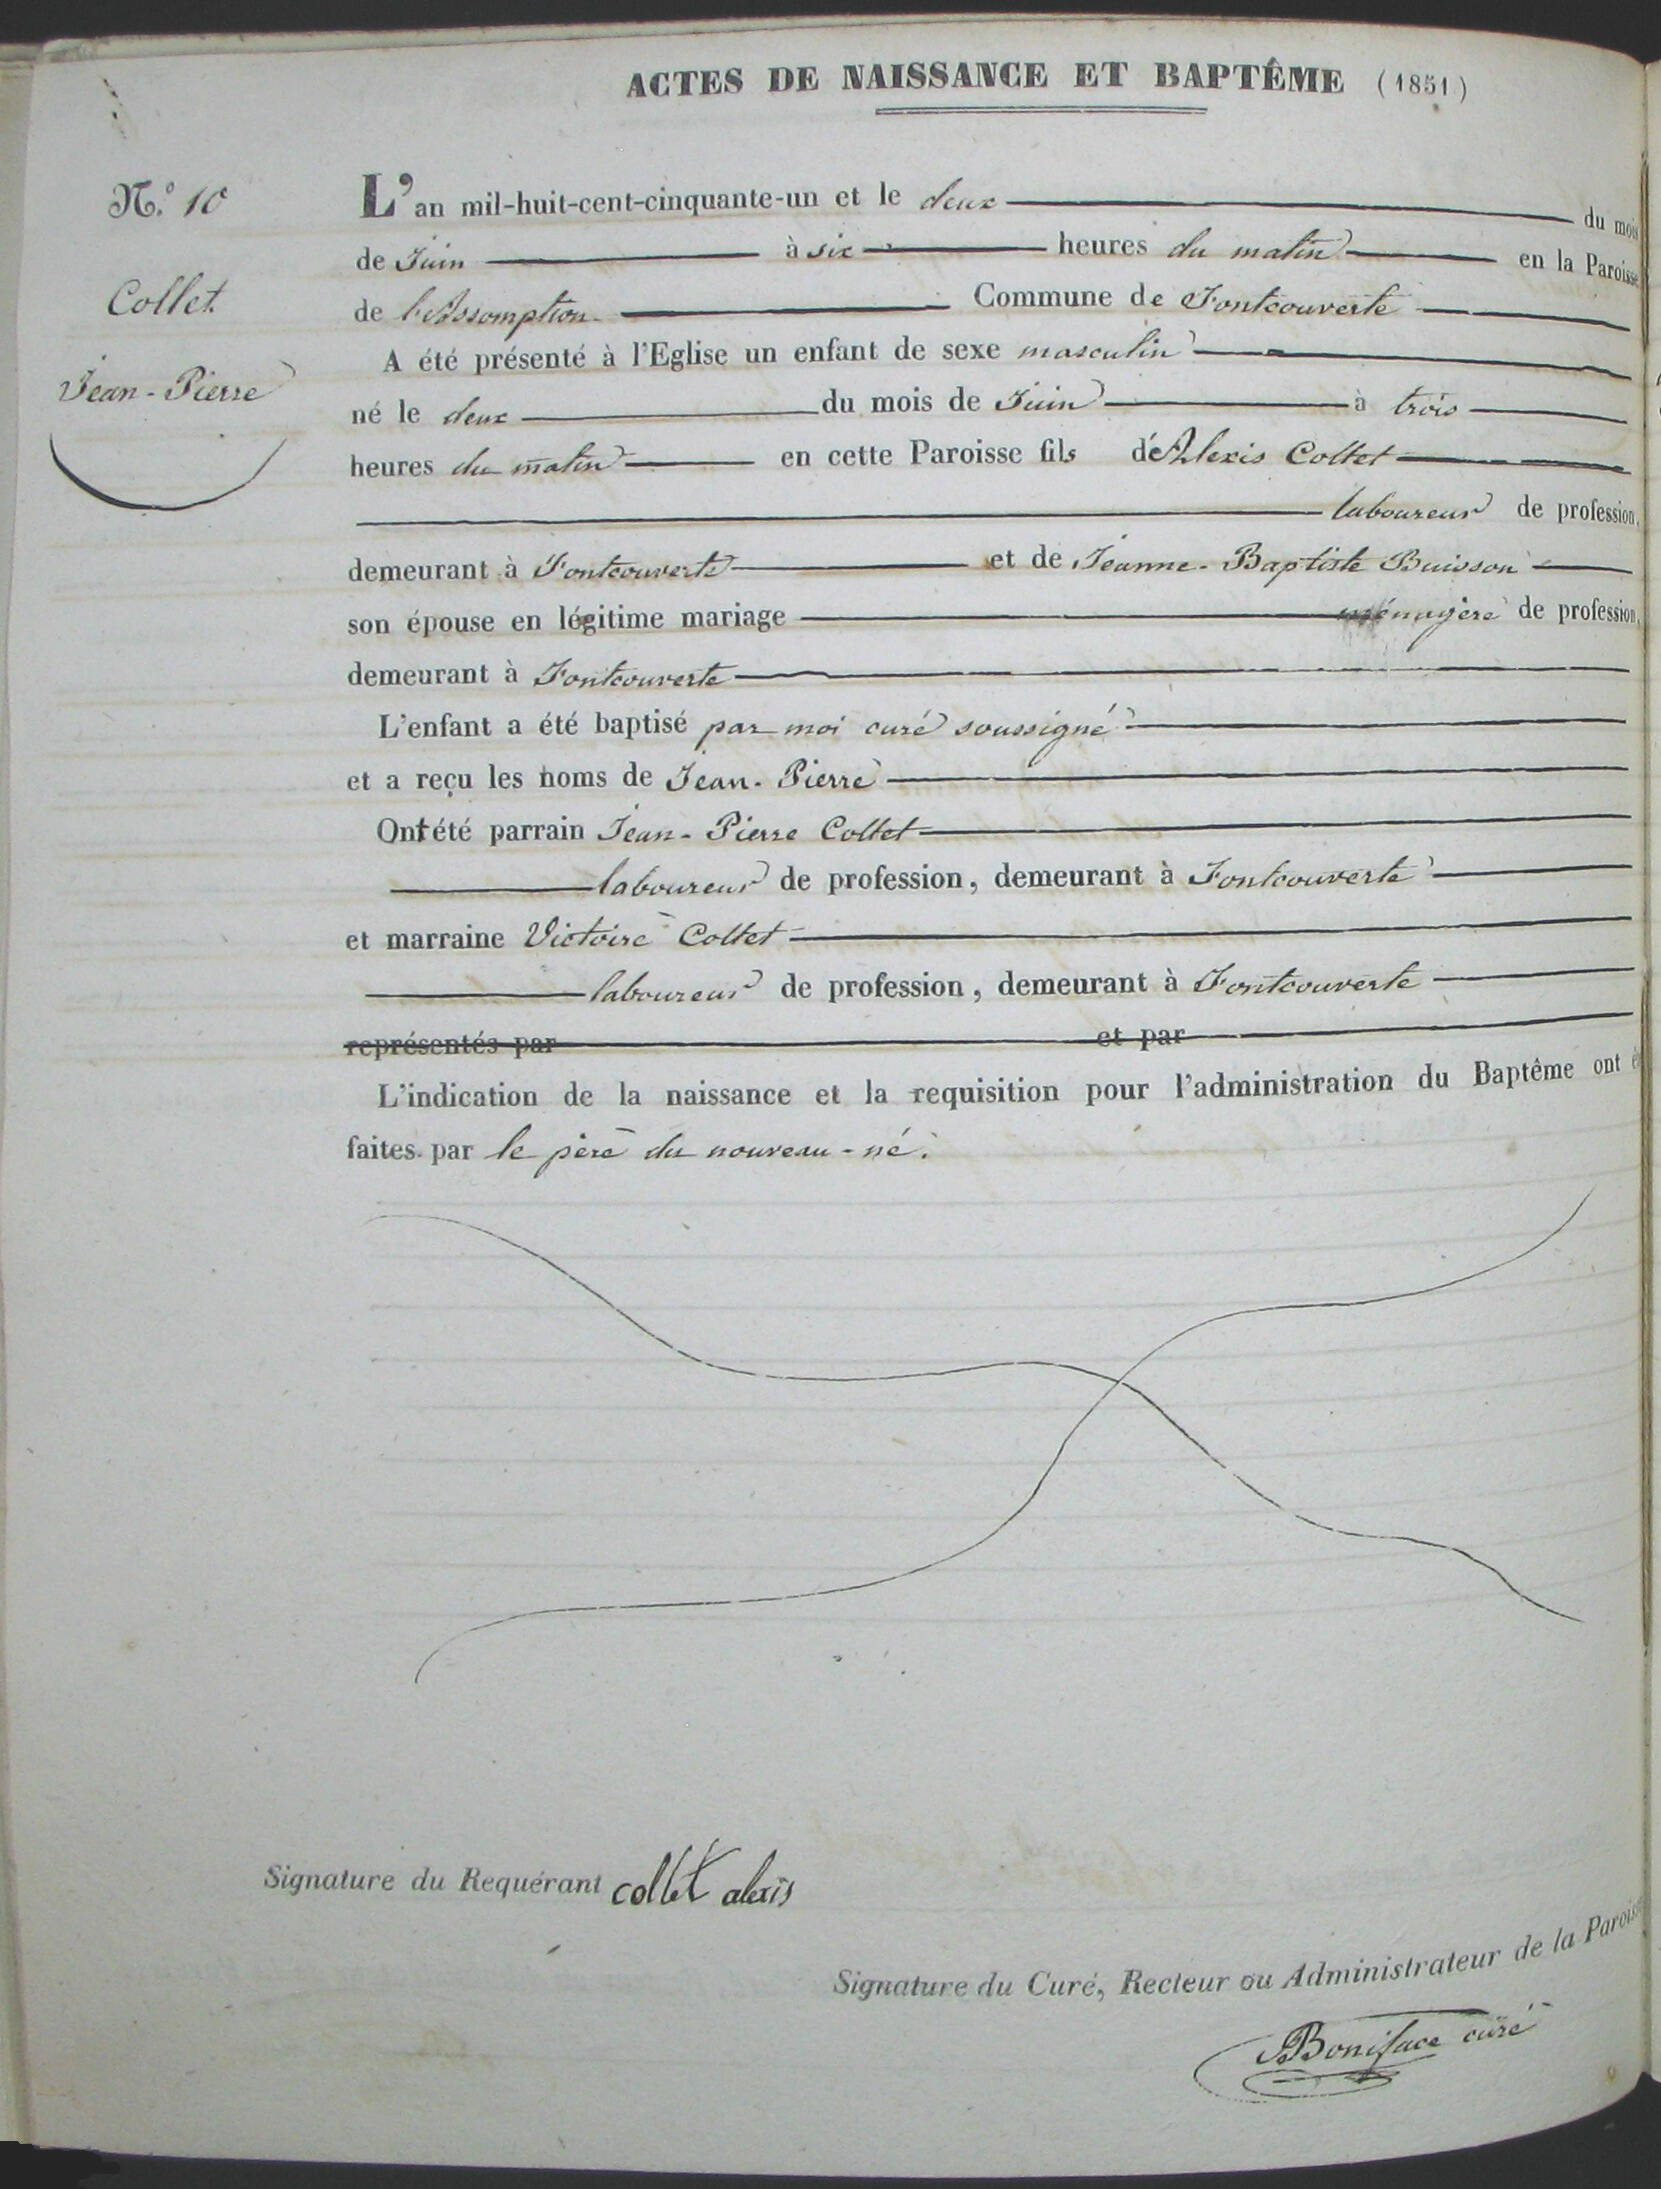 ACTES DE NAISSANCE ET BAPTÊME (1851)
N.º 10
Collet
Jean-Pierre
L'an mil-huit-cent-cinquante-un et le deux du mois
de Juin à six heures du matin en la Paroisse
de l'Assomption Commune de Fontcouverte
A été présenté à l'Eglise un enfant de sexe masculin
né le deux du mois de Juin à trois
heures du matin en cette Paroisse fils d'Alexis Collet
laboureur de profession,
demeurant à Fontcouverte et de Jeanne-Baptiste Buisson
son épouse en légitime mariage ménagère de profession,
demeurant à Fontcouverte
L'enfant a été baptisé par moi curé soussigné
et a reçu les noms de Jean-Pierre
Ont été parrain Jean-Pierre Collet
laboureur de profession, demeurant à Fontcouverte
et marraine Victoire Collet
laboureur de profession, demeurant à Fontcouverte
représentés par et par
L'indication de la naissance et la requisition pour l'administration du Baptême ont
faites par le père du nouveau-né.
Signature du Requérant collet alexis
Signature du Curé, Recteur ou Administrateur de la Paroisse
Boniface curé